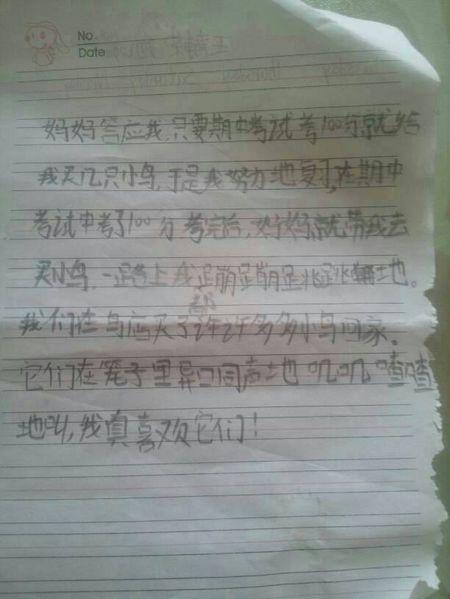 No
Date
妈妈答应我,只要期中考试考100分就给
我买几只小鸟,于是我努力地复习,在期中
考试中考了100分 考完后,妈妈就带我去
买小鸟.一路上我都蹦蹦跳跳地。
我们在鸟店买了许许多多小鸟回家.
它们在笼子里异口同声地 叽叽喳喳
地叫,我真喜欢它们!